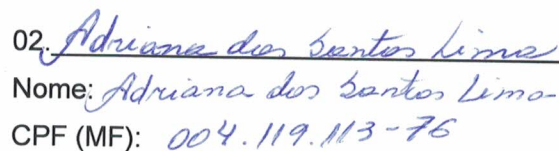 02. Adriana dos Santos Lima
Nome: Adriana dos Santos Lima
CPF (MF): 004.119.113-76